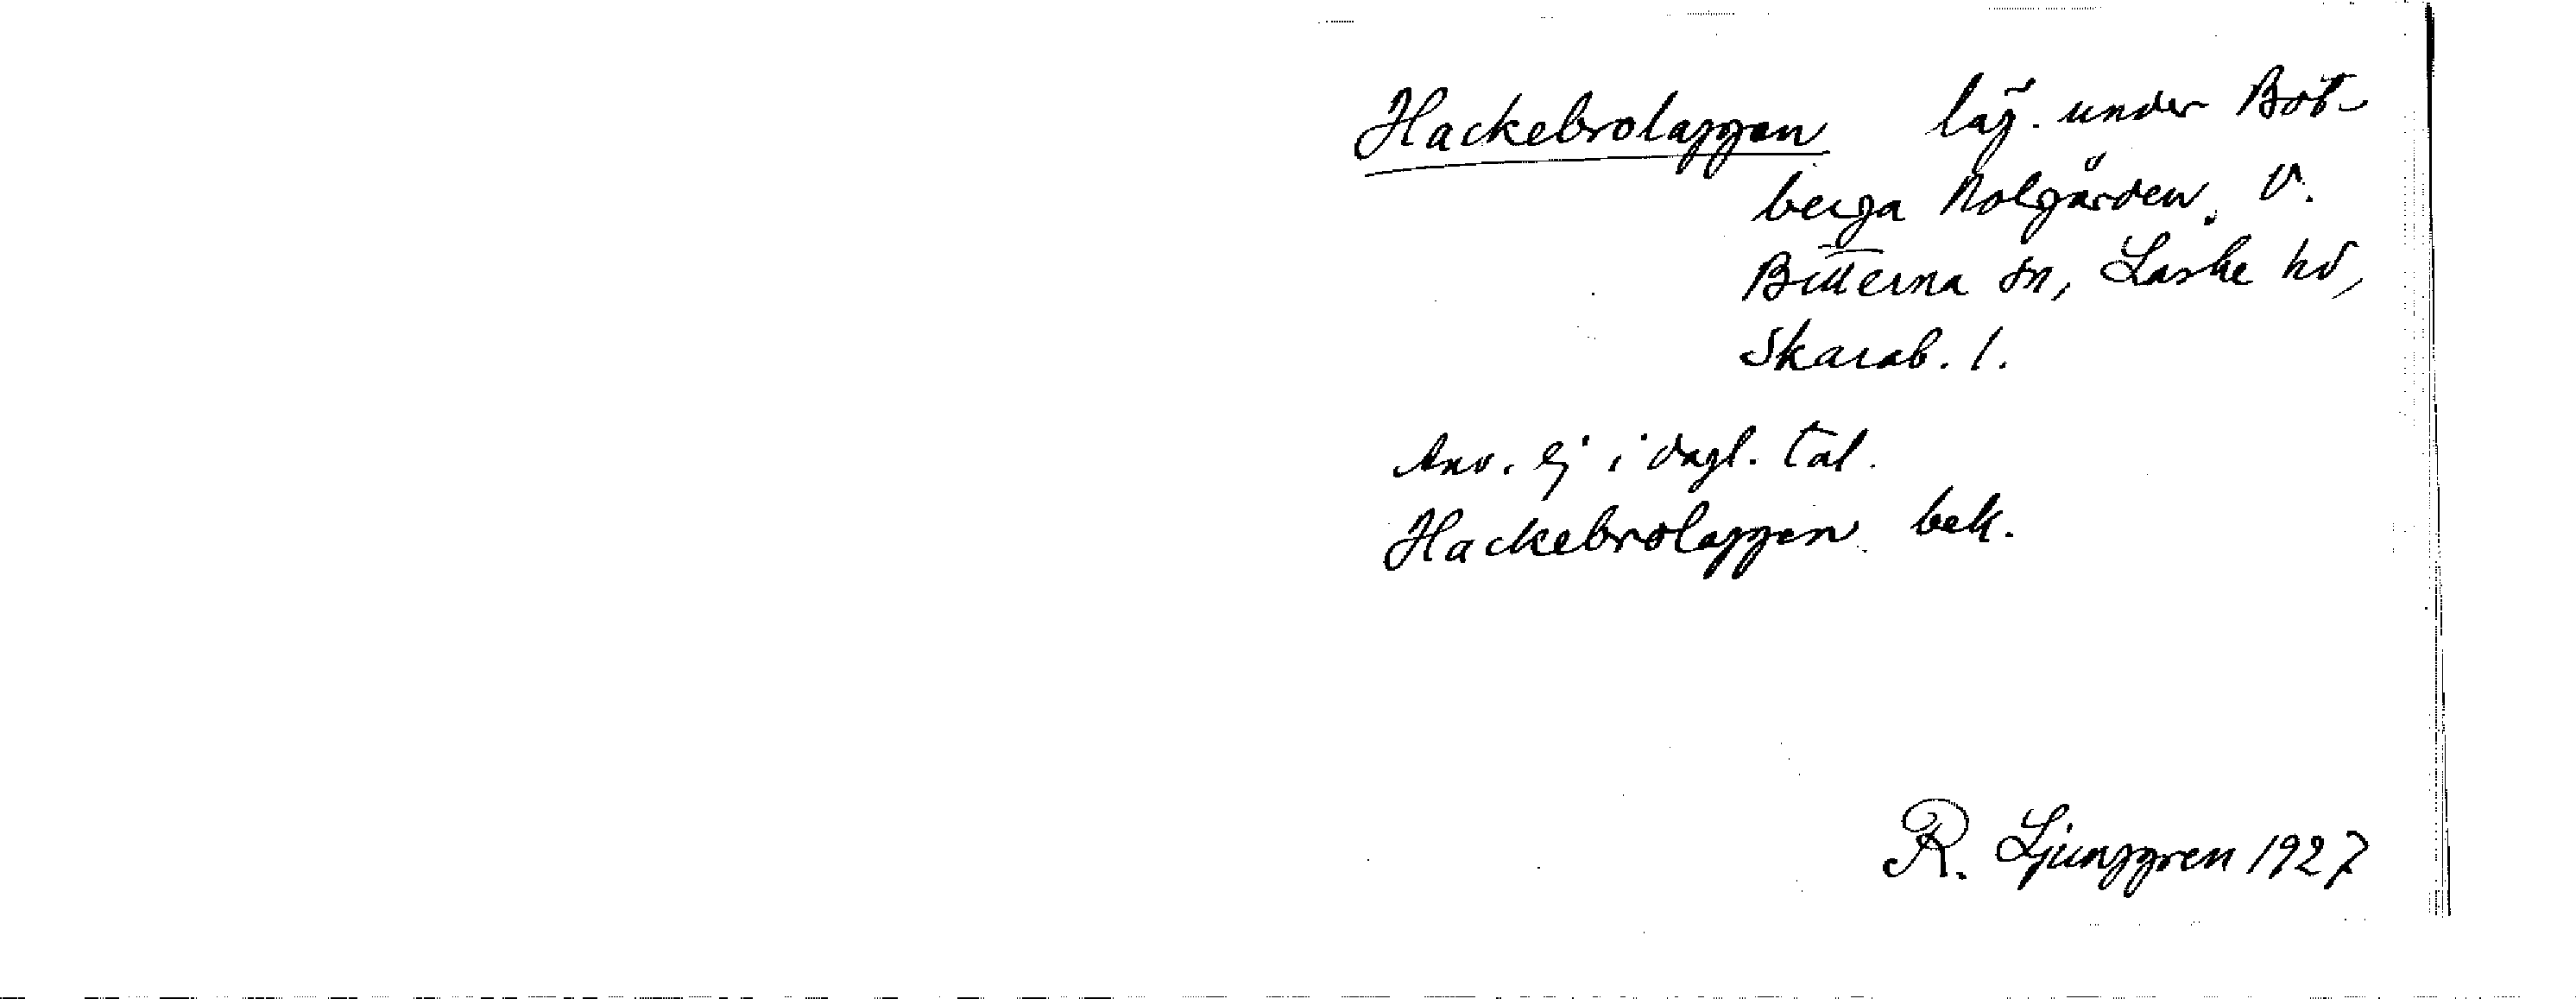 Hackebrolappen läg. under Bot-
berga Nolgården. V.
Bitterna sn, Laske hd,
Skarab. l.
Anv. ej i dagl. tal.
Hackebrolappen bek.
R. Ljunggren 1927